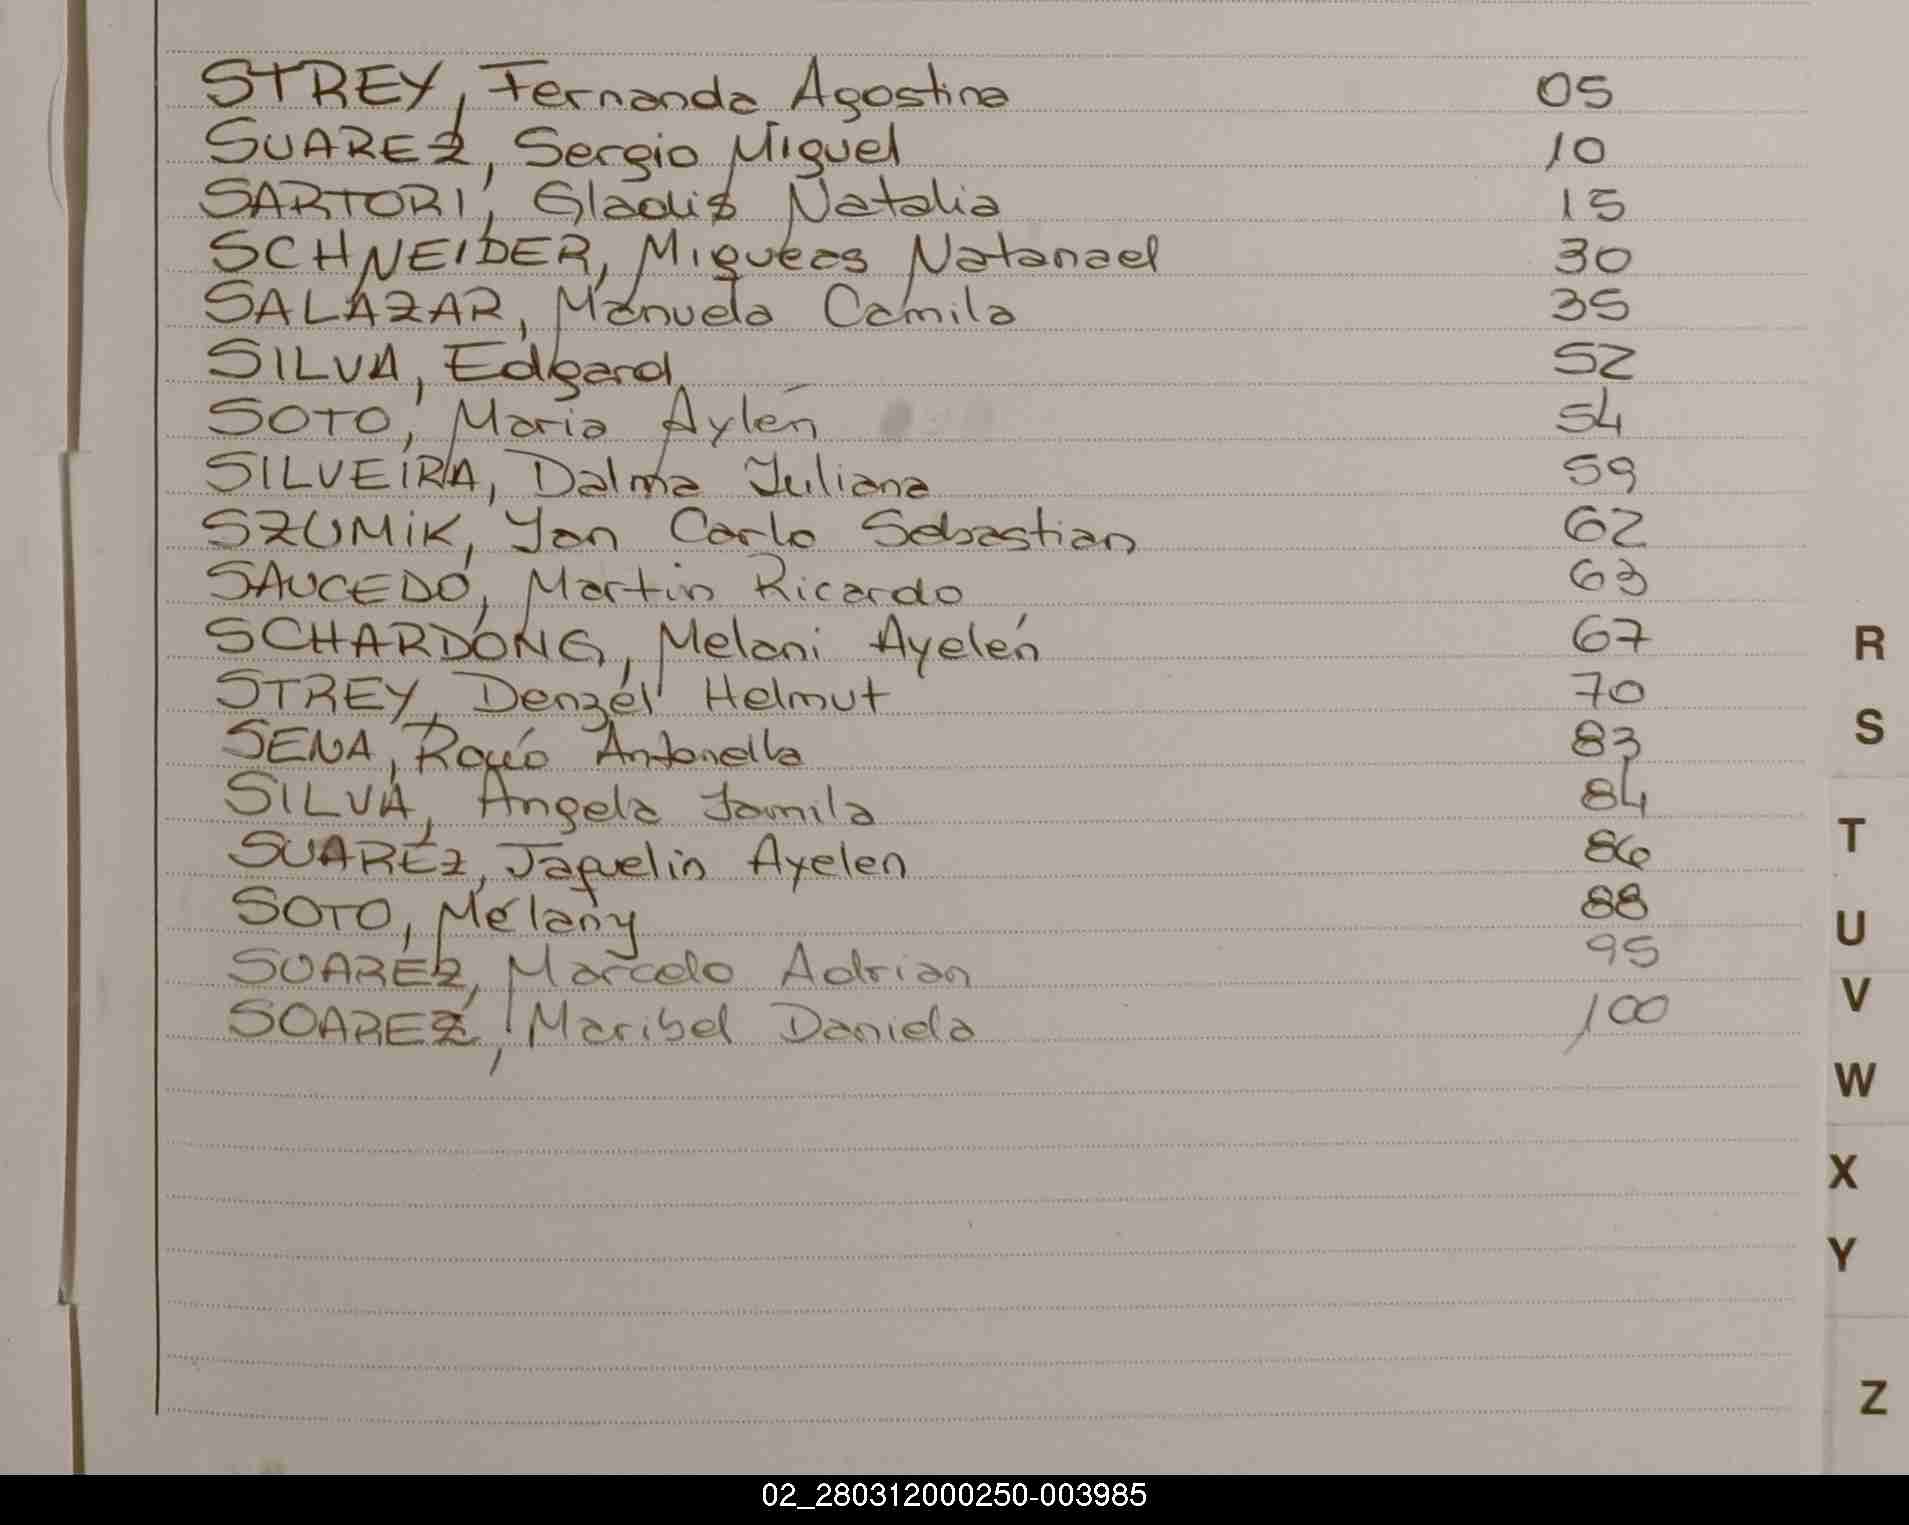 STREY, Fernanda Agostina 05
SUAREZ, Sergio Miguel 10
SARTORI, Gladis Natalia 15
SCHNEIDER, Miqueas Natanael 30
SALAZAR, Manuela Camila 35
SILVA, Edgard 52
SOTO, Maria Aylén 54
SILVEIRA, Dalma Juliana 59
SZUMIK, Yan Carlo Sebastian 62
SAUCEDO, Martin Ricardo 63
SCHARDONG, Melani Ayelén 67
STREY, Denzel Helmut 70
SENA, Rocío Antonella 83
SILVA, Angela Jamila 84
SUAREZ, Jaquelin Ayelen 86
SOTO, Melany 88
SUAREZ, Marcelo Adrian 95
SOAREZ, Maribel Daniela 100
R
S
T
U
V
W
X
Y
Z
02_280312000250-003985